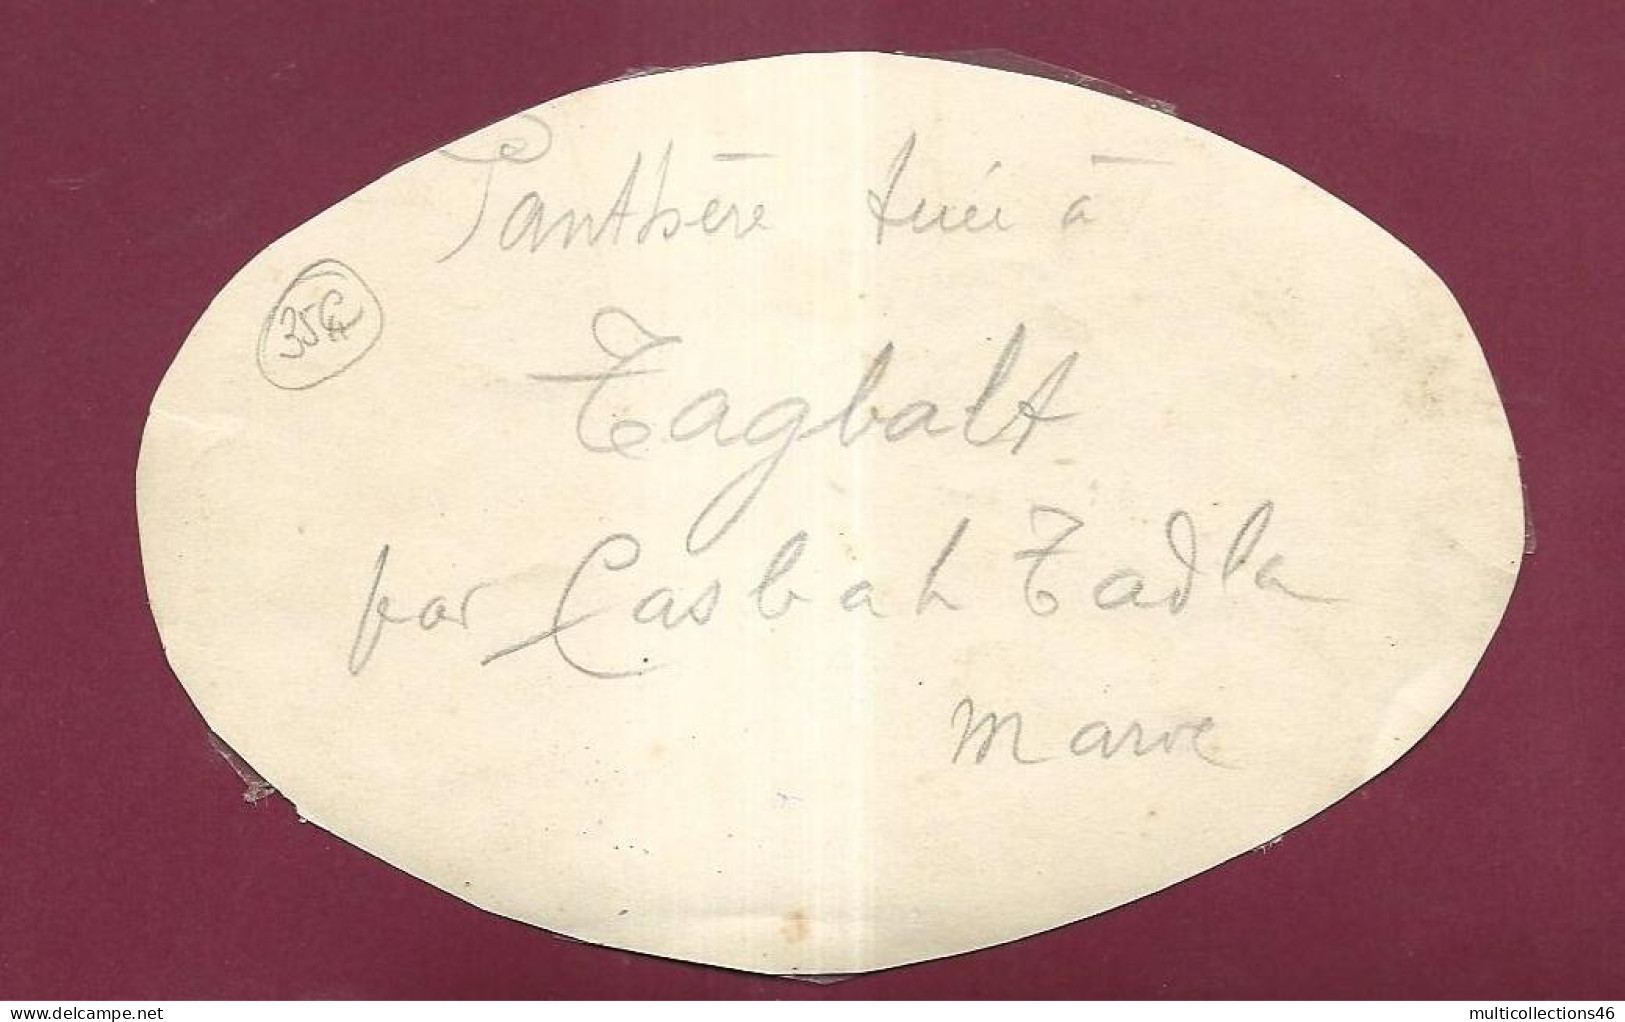 Panthère tuée à
35
Tagbalt
par Casbah Tadla
Maroc
delcampe.net
multicollections46